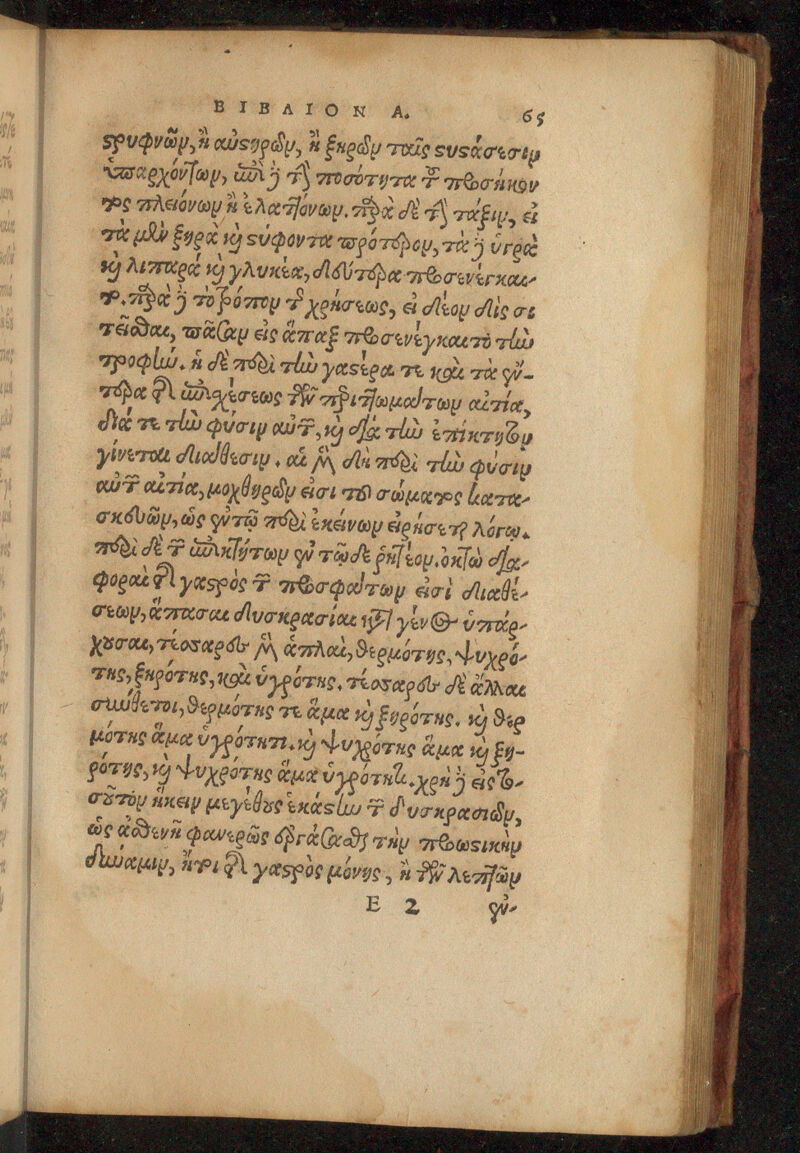 ΒΙΒΛΙΟΝ Α. 65
στρυφνῶν, ἢ αὐστηρῶν, ἢ ξηρῶν ταῖς συστάσεσιν
ὑπαρχόντων, ἀλλὰ δὲ τὴν ποσότητα τοῦ προσήκον
τος πλειόνων ἢ ἐλαττόνων. παρὰ δὲ τὴν τάξιν, εἰ
τὰ μὲν ξηρὰ καὶ στύφοντα πρότερον, τὰ δὲ ὑγρὰ
καὶ λιπαρὰ καὶ γλυκέα, δεύτερα προσενέγκαι-
το. παρὰ δὲ τὸ τρόπον τῆς χρήσεως, εἰ δέον δίς σι
τεῖσθαι, πᾶσαν εἰς ἅπαξ προσενέγκαιτο τὴν
τροφήν. ἡ δὲ περὶ τὴν γαστέρα τε καὶ τὰ ἔν-
τερα τῆς ἀλλοιώσεως τῶν περιττωμάτων αἰτία,
διά τε τὴν φύσιν αὐτῶν, καὶ διὰ τὴν ἐπίκτητον
γίνεται διάθεσιν. αἱ μὲν δὴ περὶ τὴν φύσιν
αὐτῶν αἰτία, μοχθηρῶν εἰσι τοῦ σώματος κατα-
σκευῶν, ὡς ἐν τῷ περὶ ἐκείνων εἰρήσεται λόγῳ.
περὶ δὲ τῶν ἐπικτήτων ἐν τῷδε ῥητέον. ὀκτὼ δια-
φοραὶ τῆς γαστρὸς τῶν προσφάτων εἰσὶ διαθέ-
σεων, ἅπασαι δυσκρασίαι κατὰ γένος ὑπάρ-
χουσαι, τέσσαρες μὲν ἁπλαῖ, θερμότης, ψυχρό-
της, ξηρότης, καὶ ὑγρότης. τέσσαρες δὲ ἄλλαι
σύνθετοι, θερμότης τε ἅμα καὶ ξηρότης. καὶ θερ
μότης ἅμα ὑγρότητι. καὶ ψυχρότης ἅμα καὶ ξη-
ρότης, καὶ ψυχρότης ἅμα ὑγρότητι. χρὴ δὲ εἰς το-
σοῦτον ἥκειν μεγέθους ἑκάστην τῶν δυσκρασιῶν,
ὡς ἀσθενῆ φανερῶς ἐργάσασθαι τὴν προωστικὴν
δύναμιν, ἤτοι τῆς γαστρὸς μόνης, ἢ τῶν λεπτῶν
E 2 ἐν-